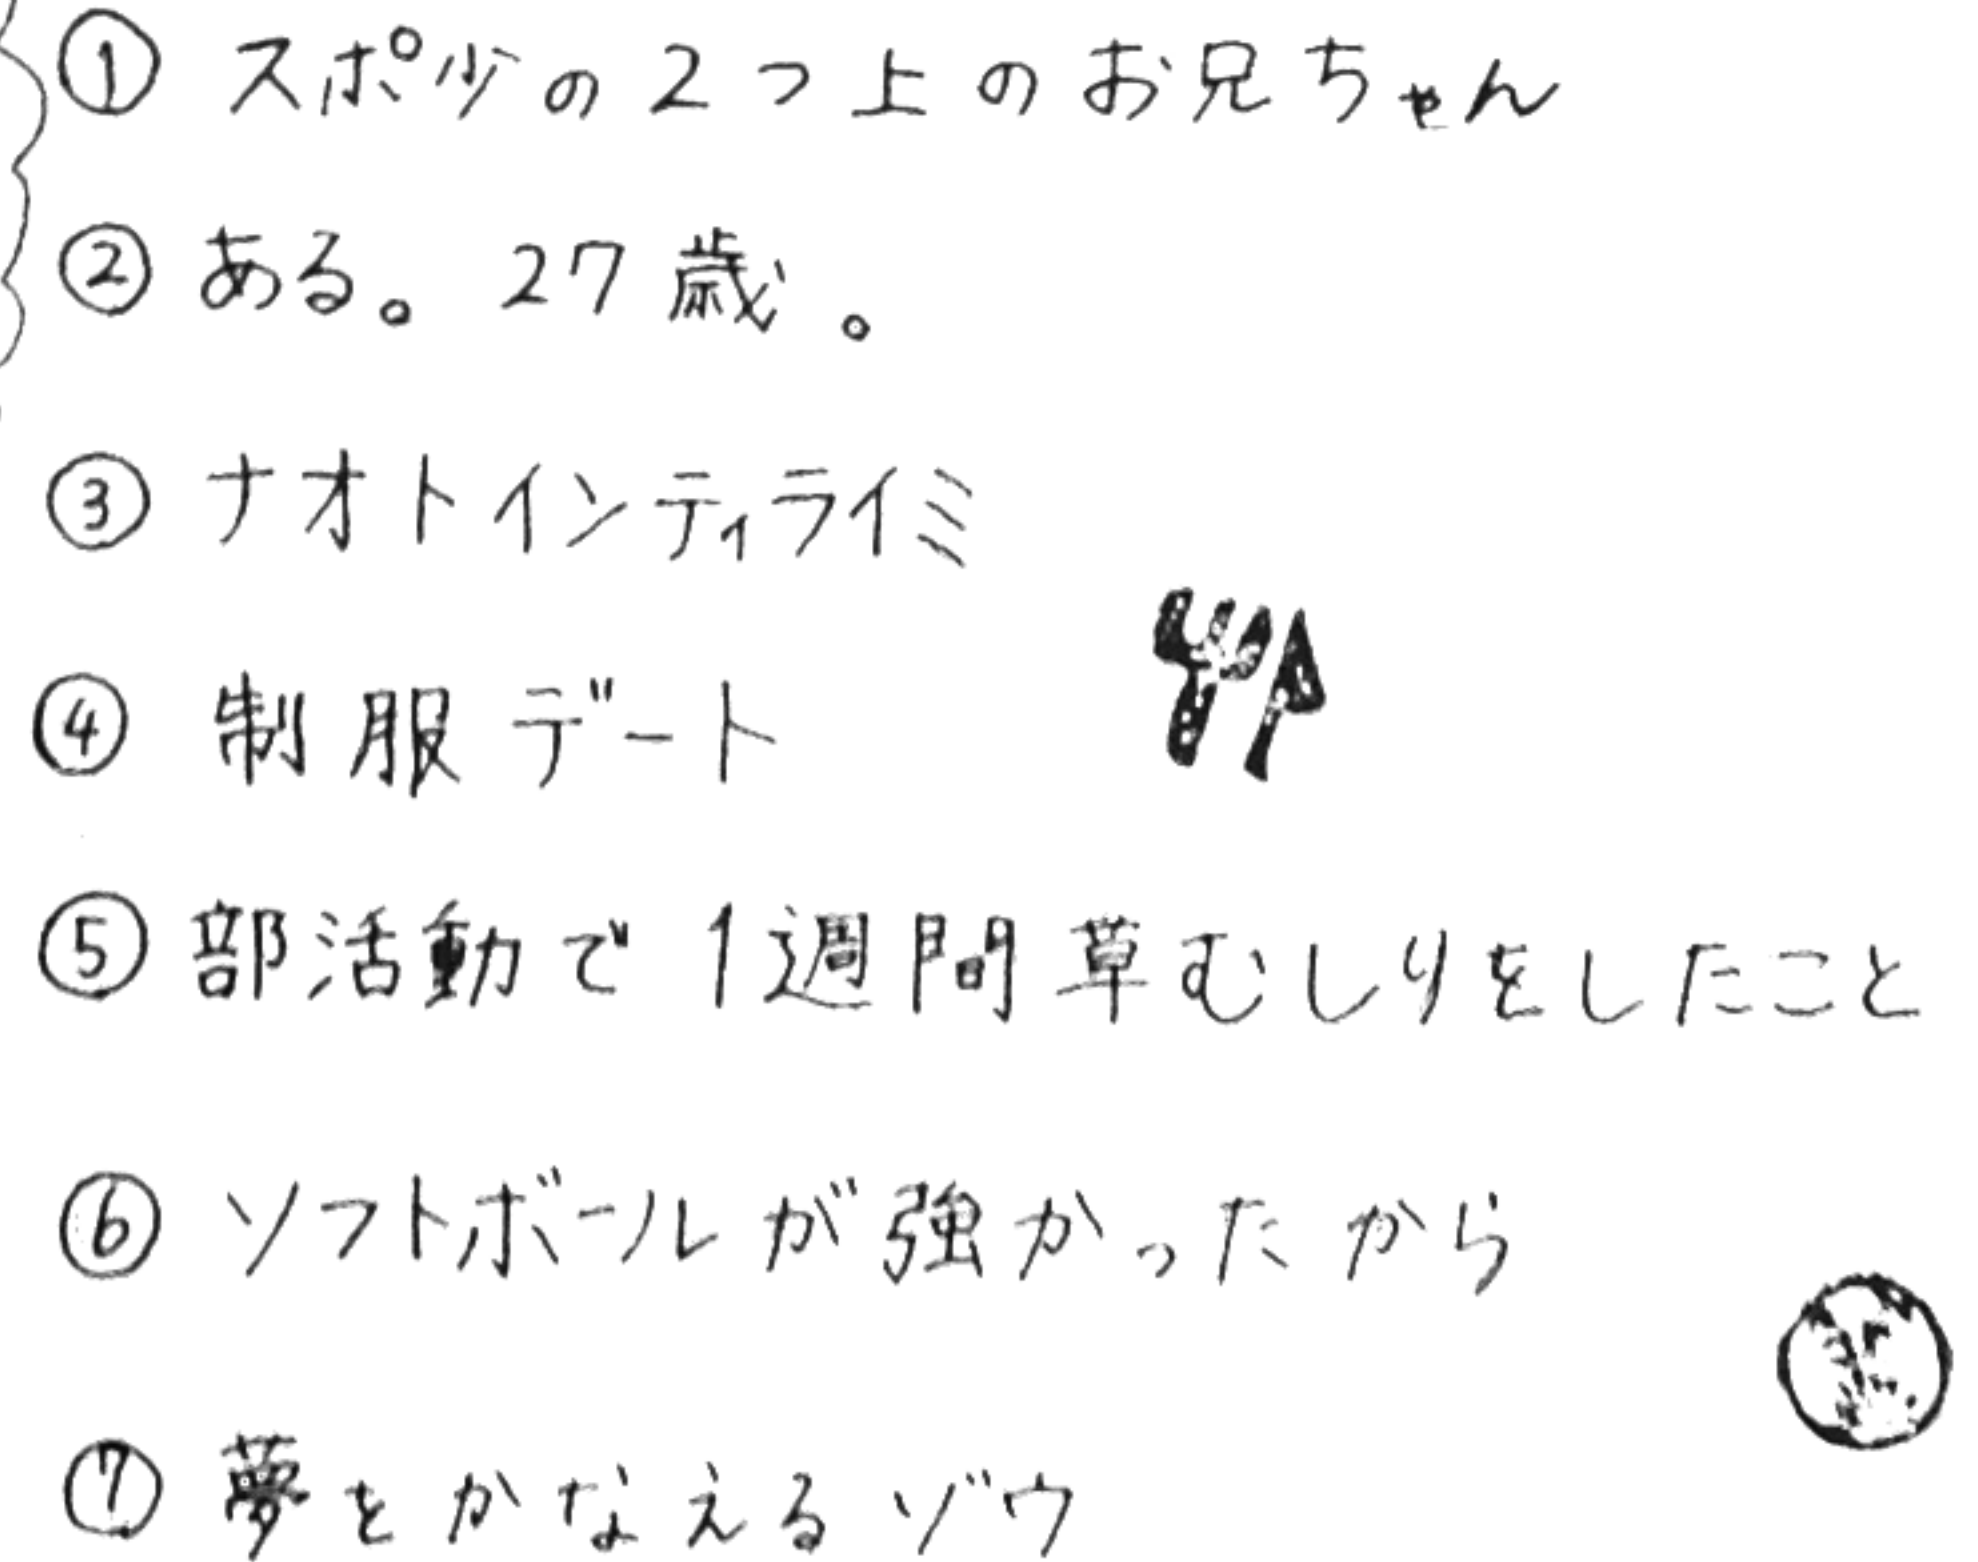 ① スポ少の2つ上のお兄ちゃん
② ある。27歳。
③ ナオトインティライミ
④ 制服デート
⑤ 部活動で1週間草むしりをしたこと
⑥ ソフトボールが強かったから
⑦ 夢をかなえるゾウ